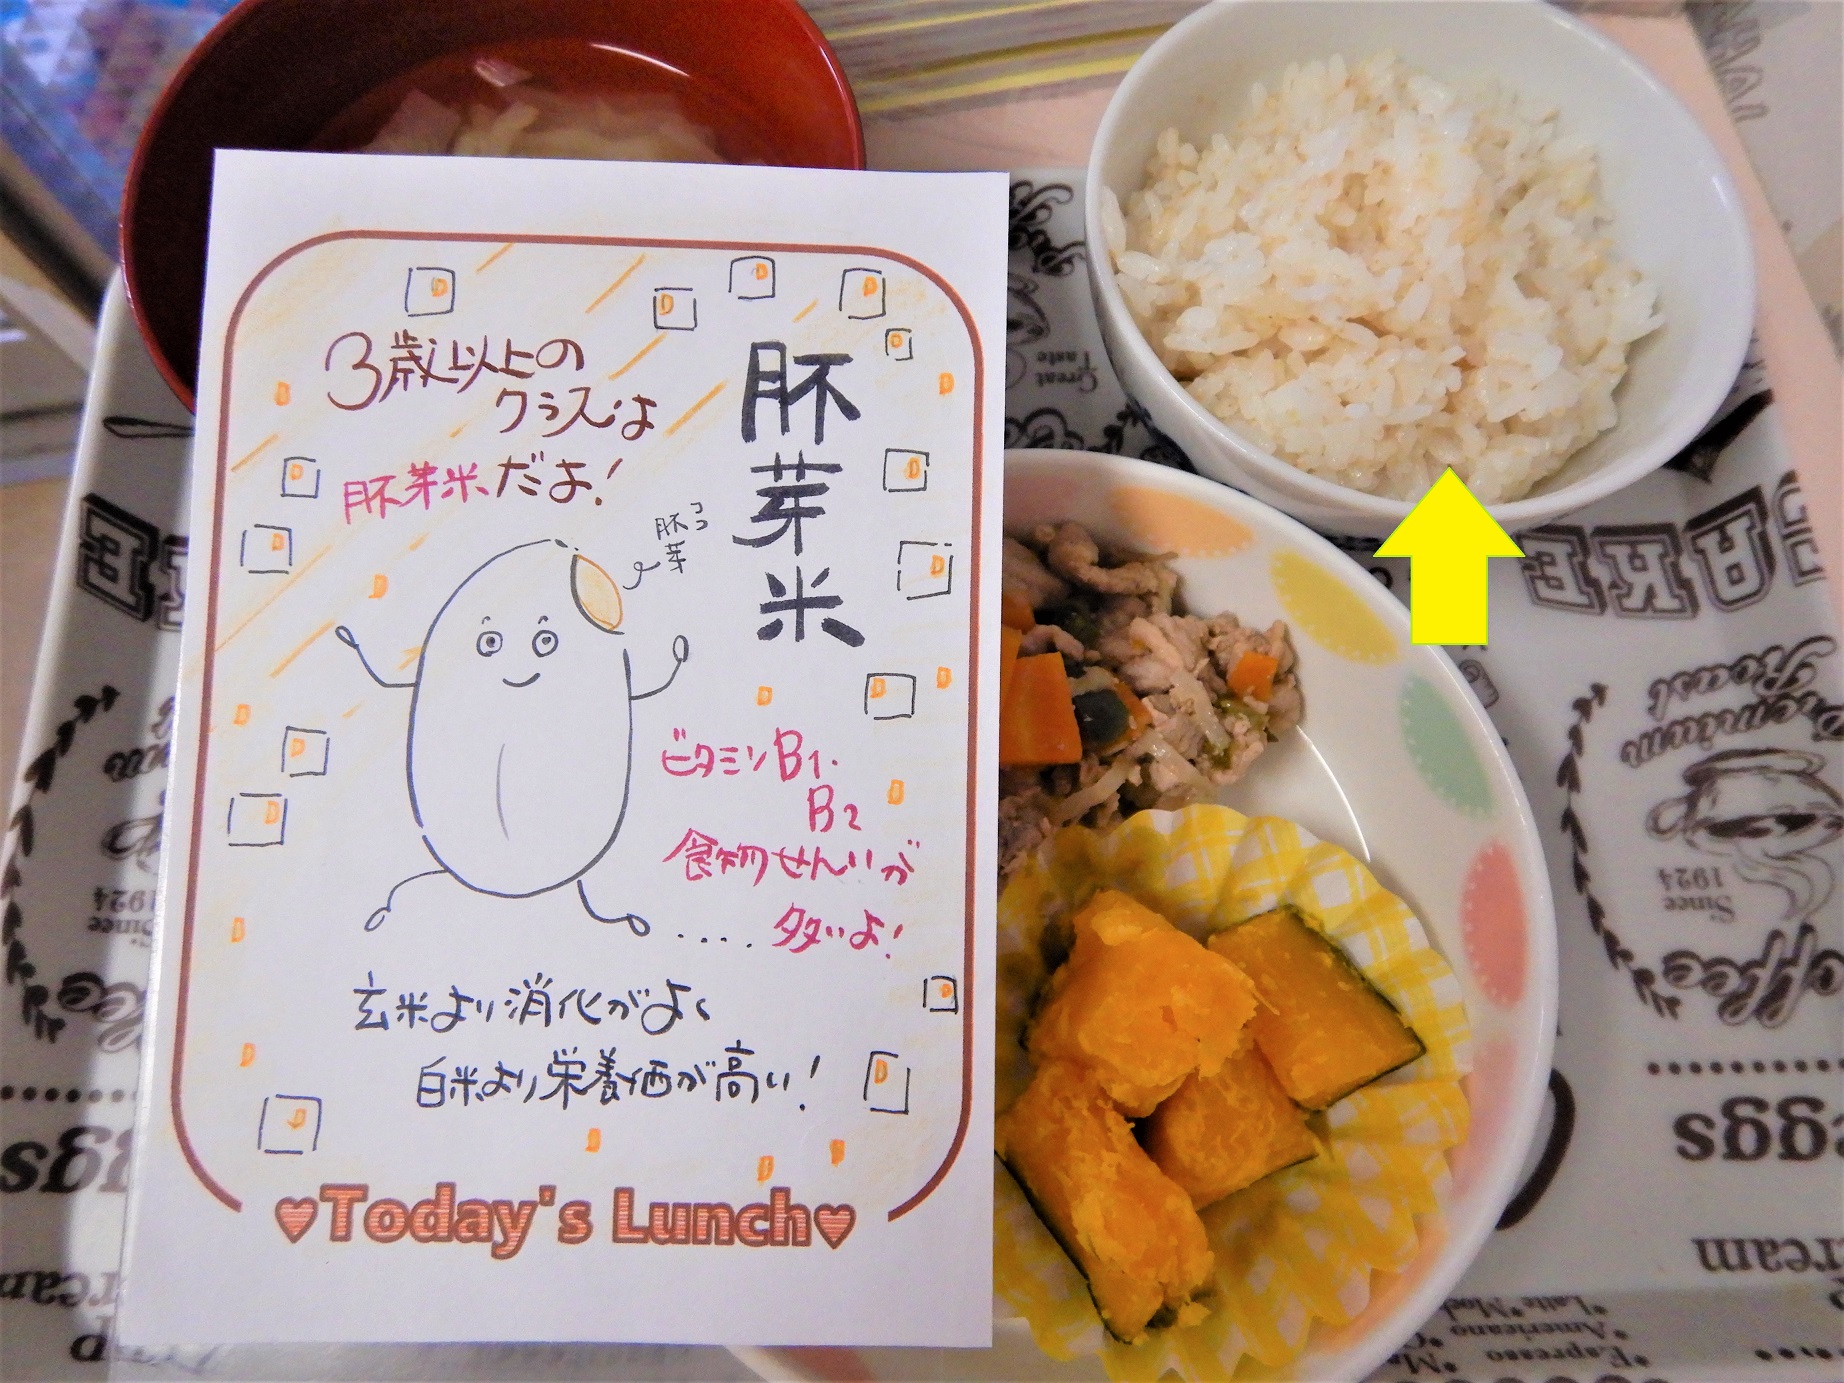 胚芽米
3歳以上の
クラスは
胚芽米だよ!
ココ
胚芽
ビタミンB1.
B2
食物せんいが
多いよ!
玄米より消化がよく
白米より栄養価が高い!
♥Today's Lunch♥
Great
Taste
CAKE
Premium
Roast
Since
1924
Coffee
Since
1924
Coffee
Eggs
Cream
*Americano
*Espresso